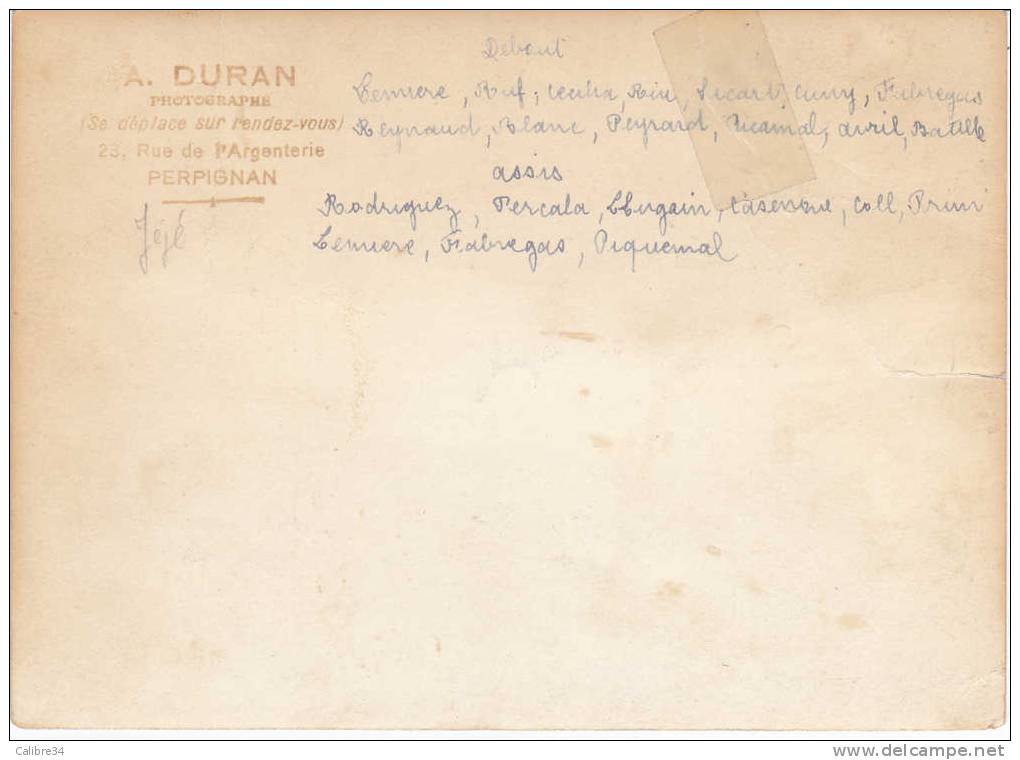 A. DURAN
PHOTOGRAPHE
(Se déplace sur rendez-vous)
23, Rue de l'Argenterie
PERPIGNAN
Jéjé
Debout
Lemere, Ruf, Cecilia, Riu, Sicart, Cuny, Fabregas
Reynaud, Blanc, Peyrard, Vicamal, avril, Batlle
assis
Rodriguez, Percala, Llugain, Casenove, Coll, Prim
Lemere, Fabregas, Piquemal
Calibre34
www.delcampe.net